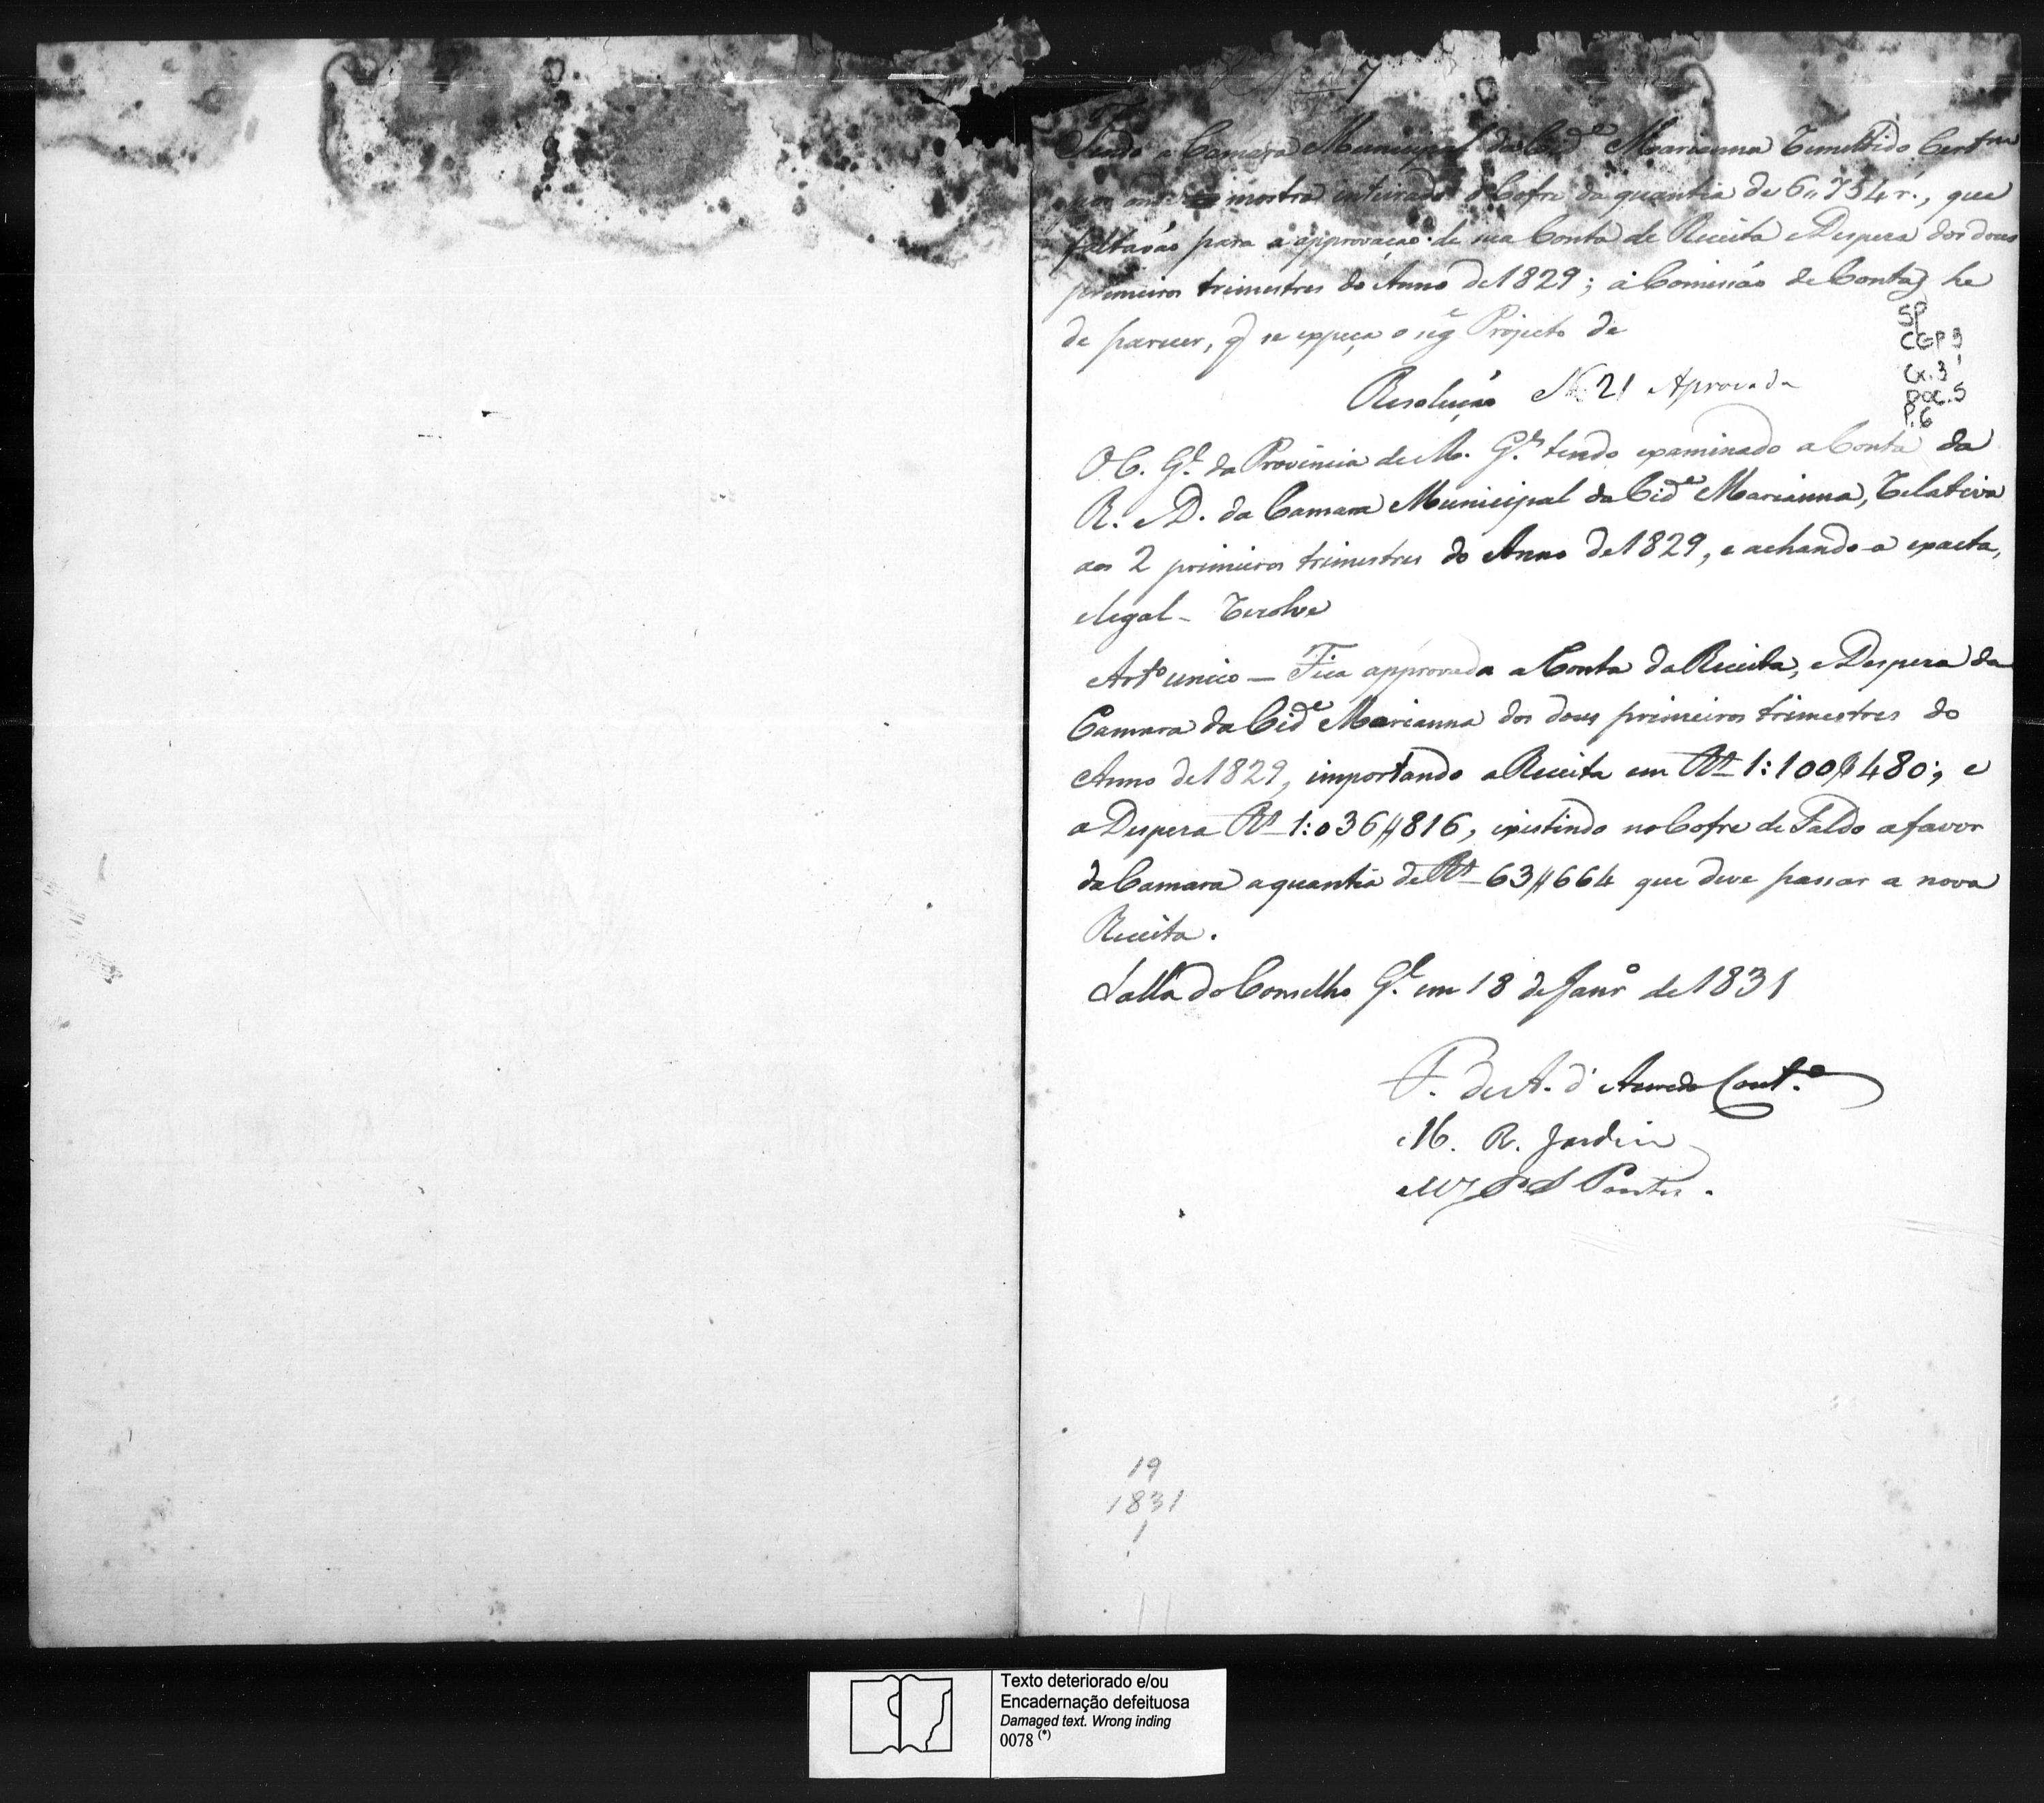 Tendo a Camara Municipal da Cid.e Marianna remettido Cert.m
mostra inteirado o Cofre da quantia de 6,,754 r.s, que
faltavão para a approvação de sua Conta de Receita e Despeza dos dous
primeiros trimestres do Anno de 1829; a Comissão de Contas he
de parecer, q̃ se expeça o seg.e Projecto de
SP
CGP 3
Cx. 3
DOC. 5
P. 6
Resolução N. 21 Aprovada
O C. G.l da Provincia de M. G.s tendo examinado a Conta da
R. e D. da Camara Municipal da Cid.e Marianna, relativa
aos 2 primeiros trimestres do Anno de 1829, e achando-a exacta,
e legal - resolve
Art.o unico — Fica approvada a Conta da Receita, e Despeza da
Camara da Cid.e Marianna dos dous primeiros trimestres do
Anno de 1829, importando a Receita em R.s 1:100$480; e
a Despeza R.s 1:036$816, existindo no Cofre de Saldo a favor
da Camara a quantia de R.s 63$664 que deve passar a nova
Receita.
Salla do Conselho G.l em 18 de Janr.o de 1831
F. de A. d'Azevedo Cout.o
M. R. Jardim
Pontes.
19
1831
1
Texto deteriorado e/ou
Encadernação defeituosa
Damaged text. Wrong inding
0078 (*)